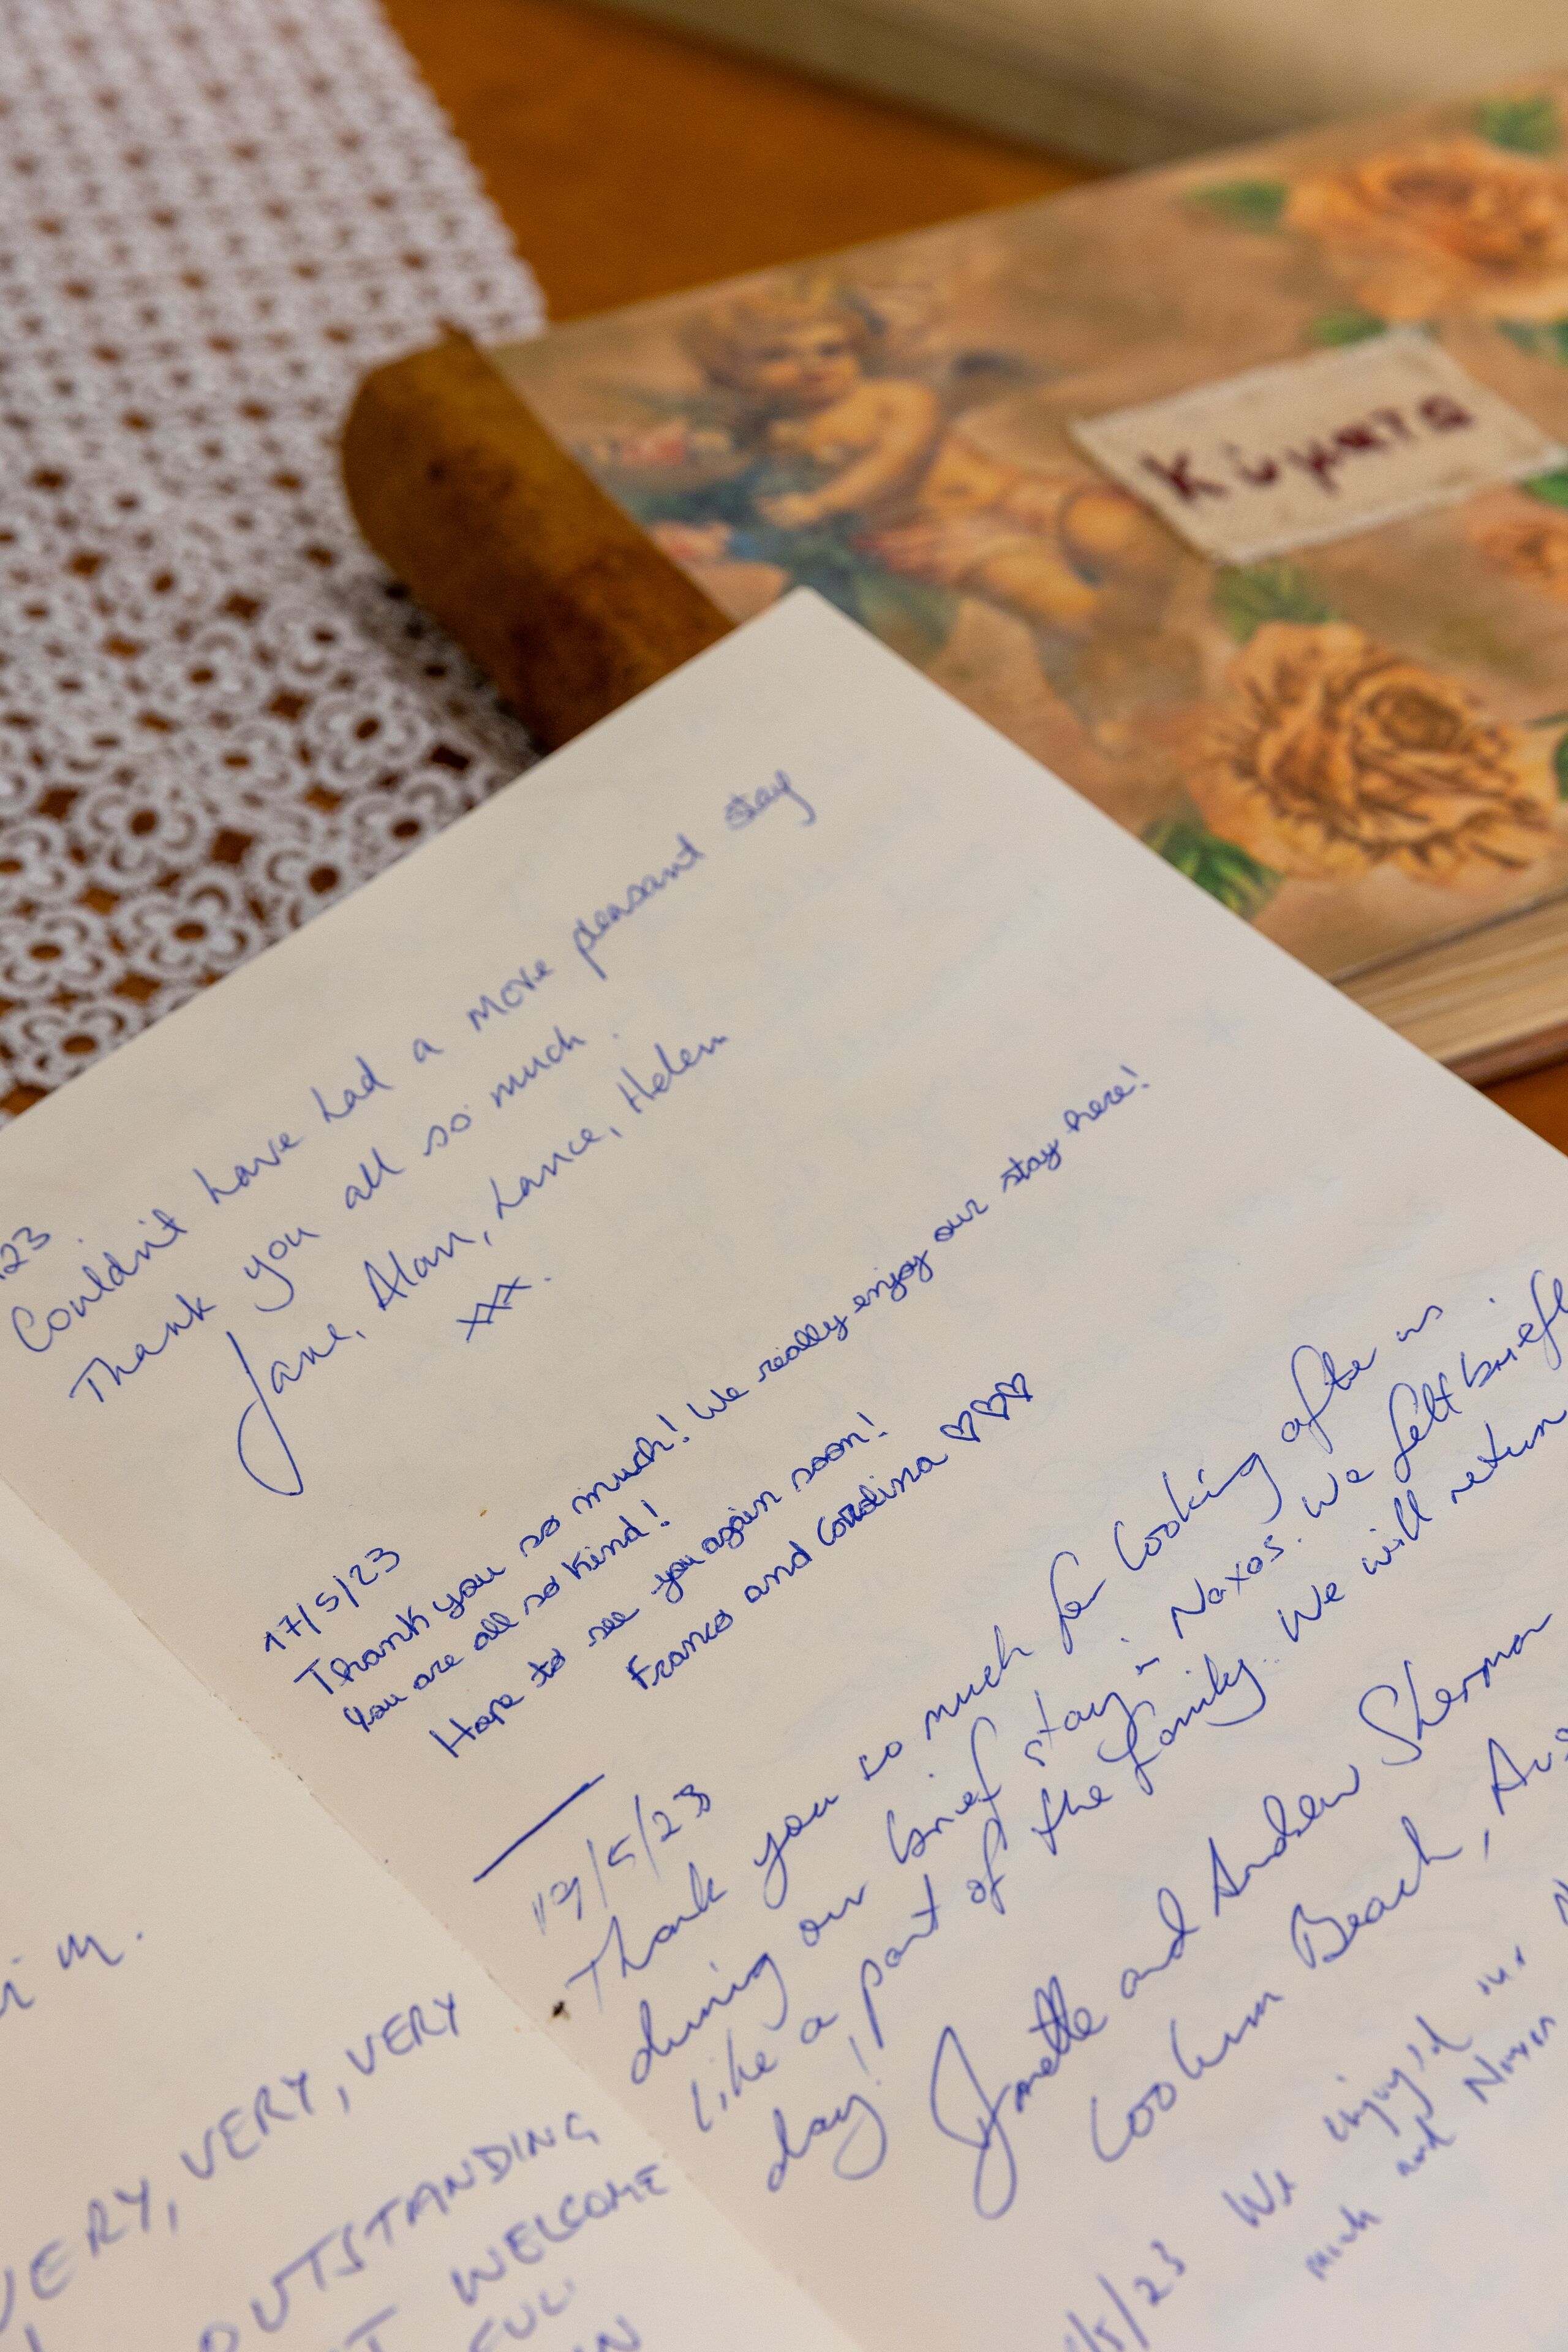 Κύματα
23
Couldn't have had a more pleasant stay
Thank you all so much.
Jane, Alan, Lance, Helen
xxx.
17/5/23
Thank you so much! We really enjoy our stay here!
You are all so kind!
Hope to see you again soon!
Franco and Carolina ♡♡♡
/5/23
Thank you so much for looking after us
during our brief stay in Naxos. We felt briefl
like a part of the family. We will return
day!
and Andrew Sherman
Beach,
/5/23 We enjoyed
much and
m.
VERY, VERY, VERY
OUTSTANDING
WELCOME